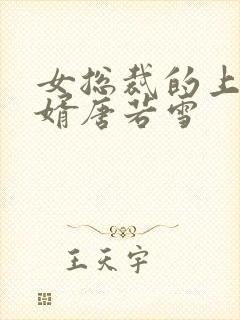 女总裁的上
婿唐若雪
王天宇